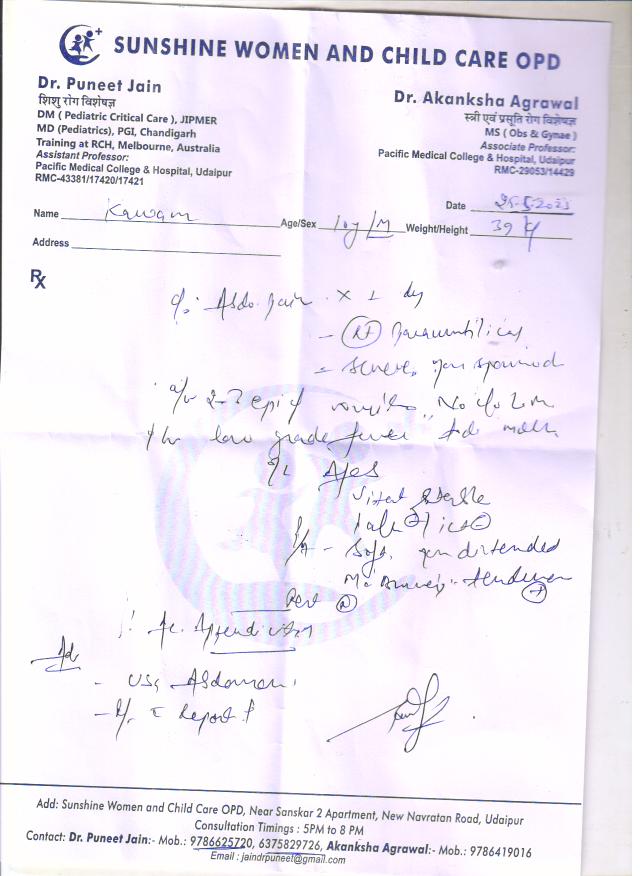 SUNSHINE WOMEN AND CHILD CARE OPD
Dr. Puneet Jain
शिशु रोग विशेषज्ञ
DM ( Pediatric Critical Care ), JIPMER
MD (Pediatrics), PGI, Chandigarh
Training at RCH, Melbourne, Australia
Assistant Professor:
Pacific Medical College & Hospital, Udaipur
RMC-43381/17420/17421
Dr. Akanksha Agrawal
स्त्री एवं प्रसूति रोग विशेषज्ञ
MS ( Obs & Gynae )
Associate Professor:
Pacific Medical College & Hospital, Udaipur
RMC-29053/14429
Date 25.5.2023
Name Age/Sex 10y/M Weight/Height 39
Address
Rx
c/o: Abdo. pain x 1 day
- (Rt) paraumbilical
- severe,
2-3 epi of No
low grade fever
Vital stable
P/A - Soft, non distended
McBurney's tenderness +
Ac. Appendicitis
Adv
- USG Abdomen
- Report
Add: Sunshine Women and Child Care OPD, Near Sanskar 2 Apartment, New Navratan Road, Udaipur
Consultation Timings : 5PM to 8 PM
Contact: Dr. Puneet Jain:- Mob.: 9786625720, 6375829726, Akanksha Agrawal:- Mob.: 9786419016
Email : jaindrpuneet@gmail.com